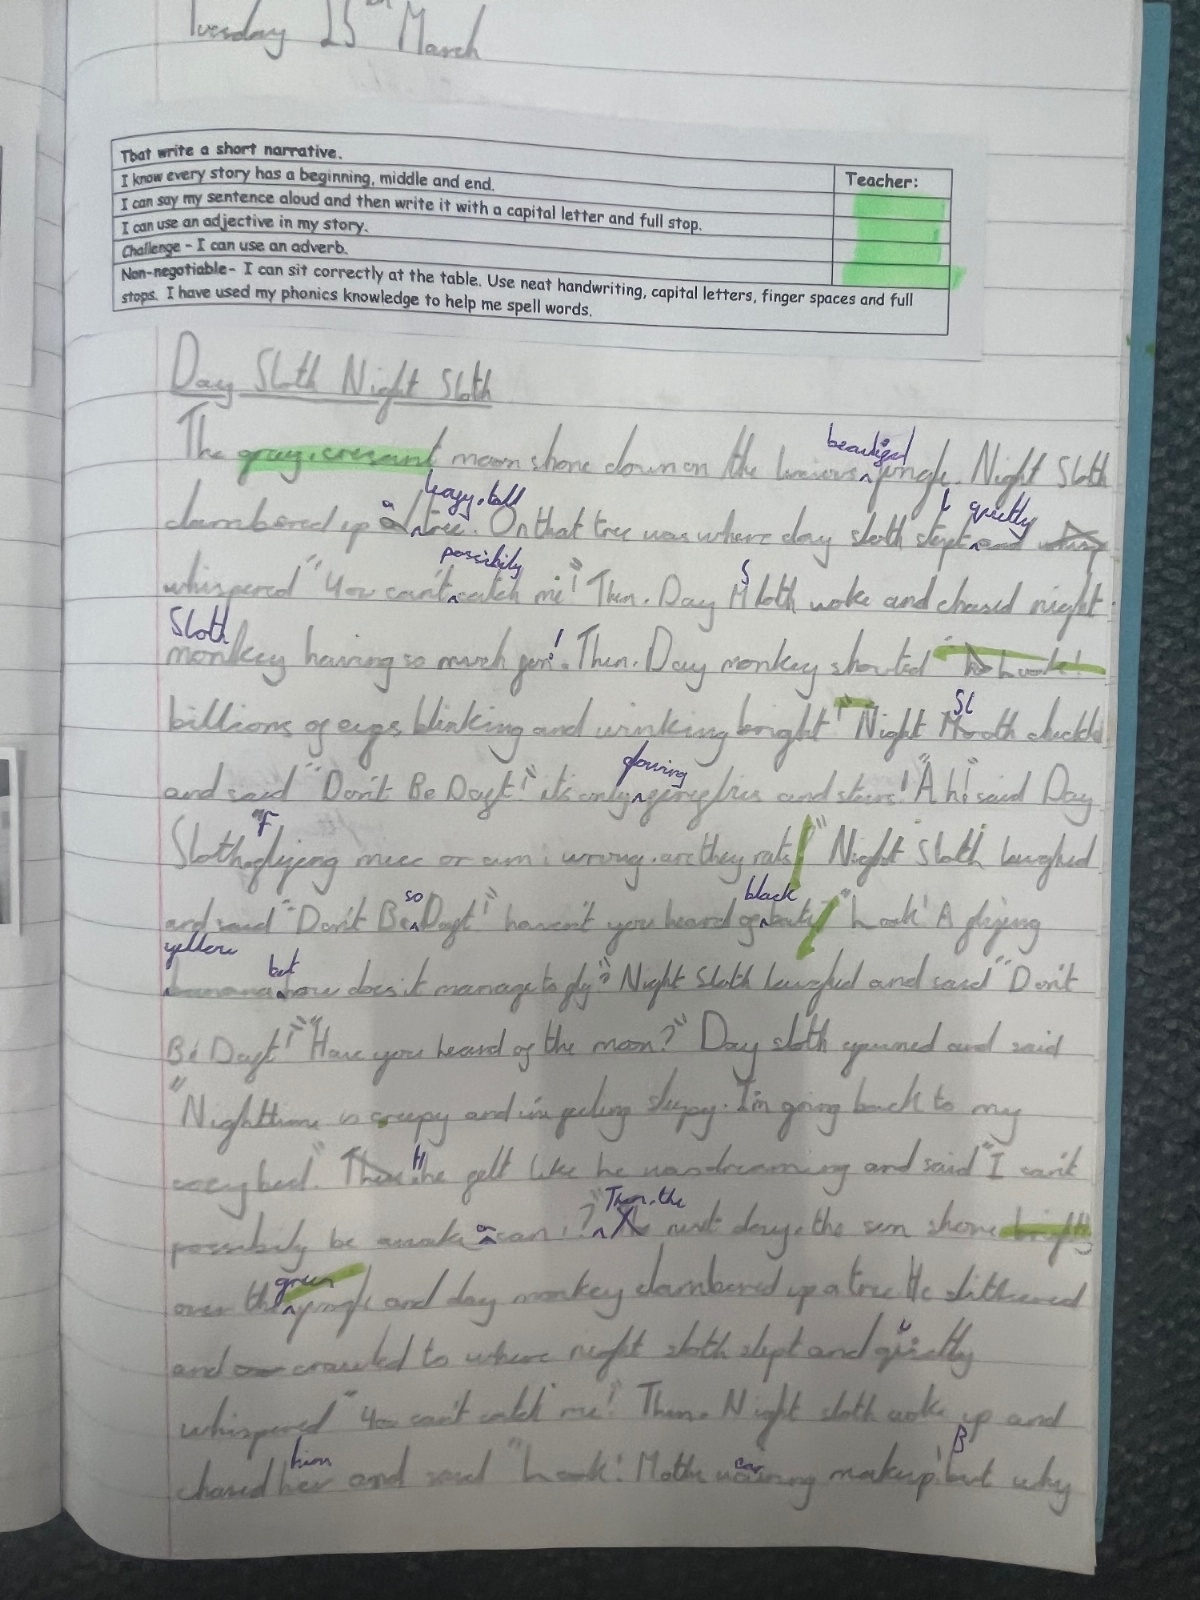 Tuesday 25th March
That write a short narrative.
I know every story has a beginning, middle and end.
Teacher:
I can say my sentence aloud and then write it with a capital letter and full stop.
I can use an adjective in my story.
Challenge - I can use an adverb.
Non-negotiable- I can sit correctly at the table. Use neat handwriting, capital letters, finger spaces and full
stops. I have used my phonics knowledge to help me spell words.
Day Sloth Night Sloth
beautiful
The gray, cresant moon shone down on the jungle. Night Sloth
a leafy, tall quietly
clambered up a tree. On that tree was where day sloth slept and
possibily
whispered "You can't catch me!" Then, Day Sloth woke and chased night
Sloth
monkey having so much fun! Then, Day monkey shouted
Sl
billions of eyes blinking and winking bright!" Night
glowing
and said "Don't Be Daft!" it's only fireflies and stars! "Ah" said Day
F
Sloth flying mice or am i wrong, are they rats!" Night Sloth laughed
so black
and said "Don't Be Daft!" haven't you heard of bats!" "Look! A flying
yellow but
banana how does it manage to fly? Night Sloth laughed and said "Don't
Be Daft!" "Have you heard of the moon?" Day sloth yawned and said
"Nighttime is creepy and i'm feeling sleepy. I'm going back to my
H
bed." he felt like he was dreaming and said "I can't
or Then, the
possibily be awake can i?" next day, the sun shone bright
green
over the jungle and day monkey clambered up a tree He slithered
and crawled to where night sloth slept and quietly
whispered "You can't catch me!" Then, Night sloth woke up and
him ear B
chased her and said "Look! Moths wearing makeup! but why